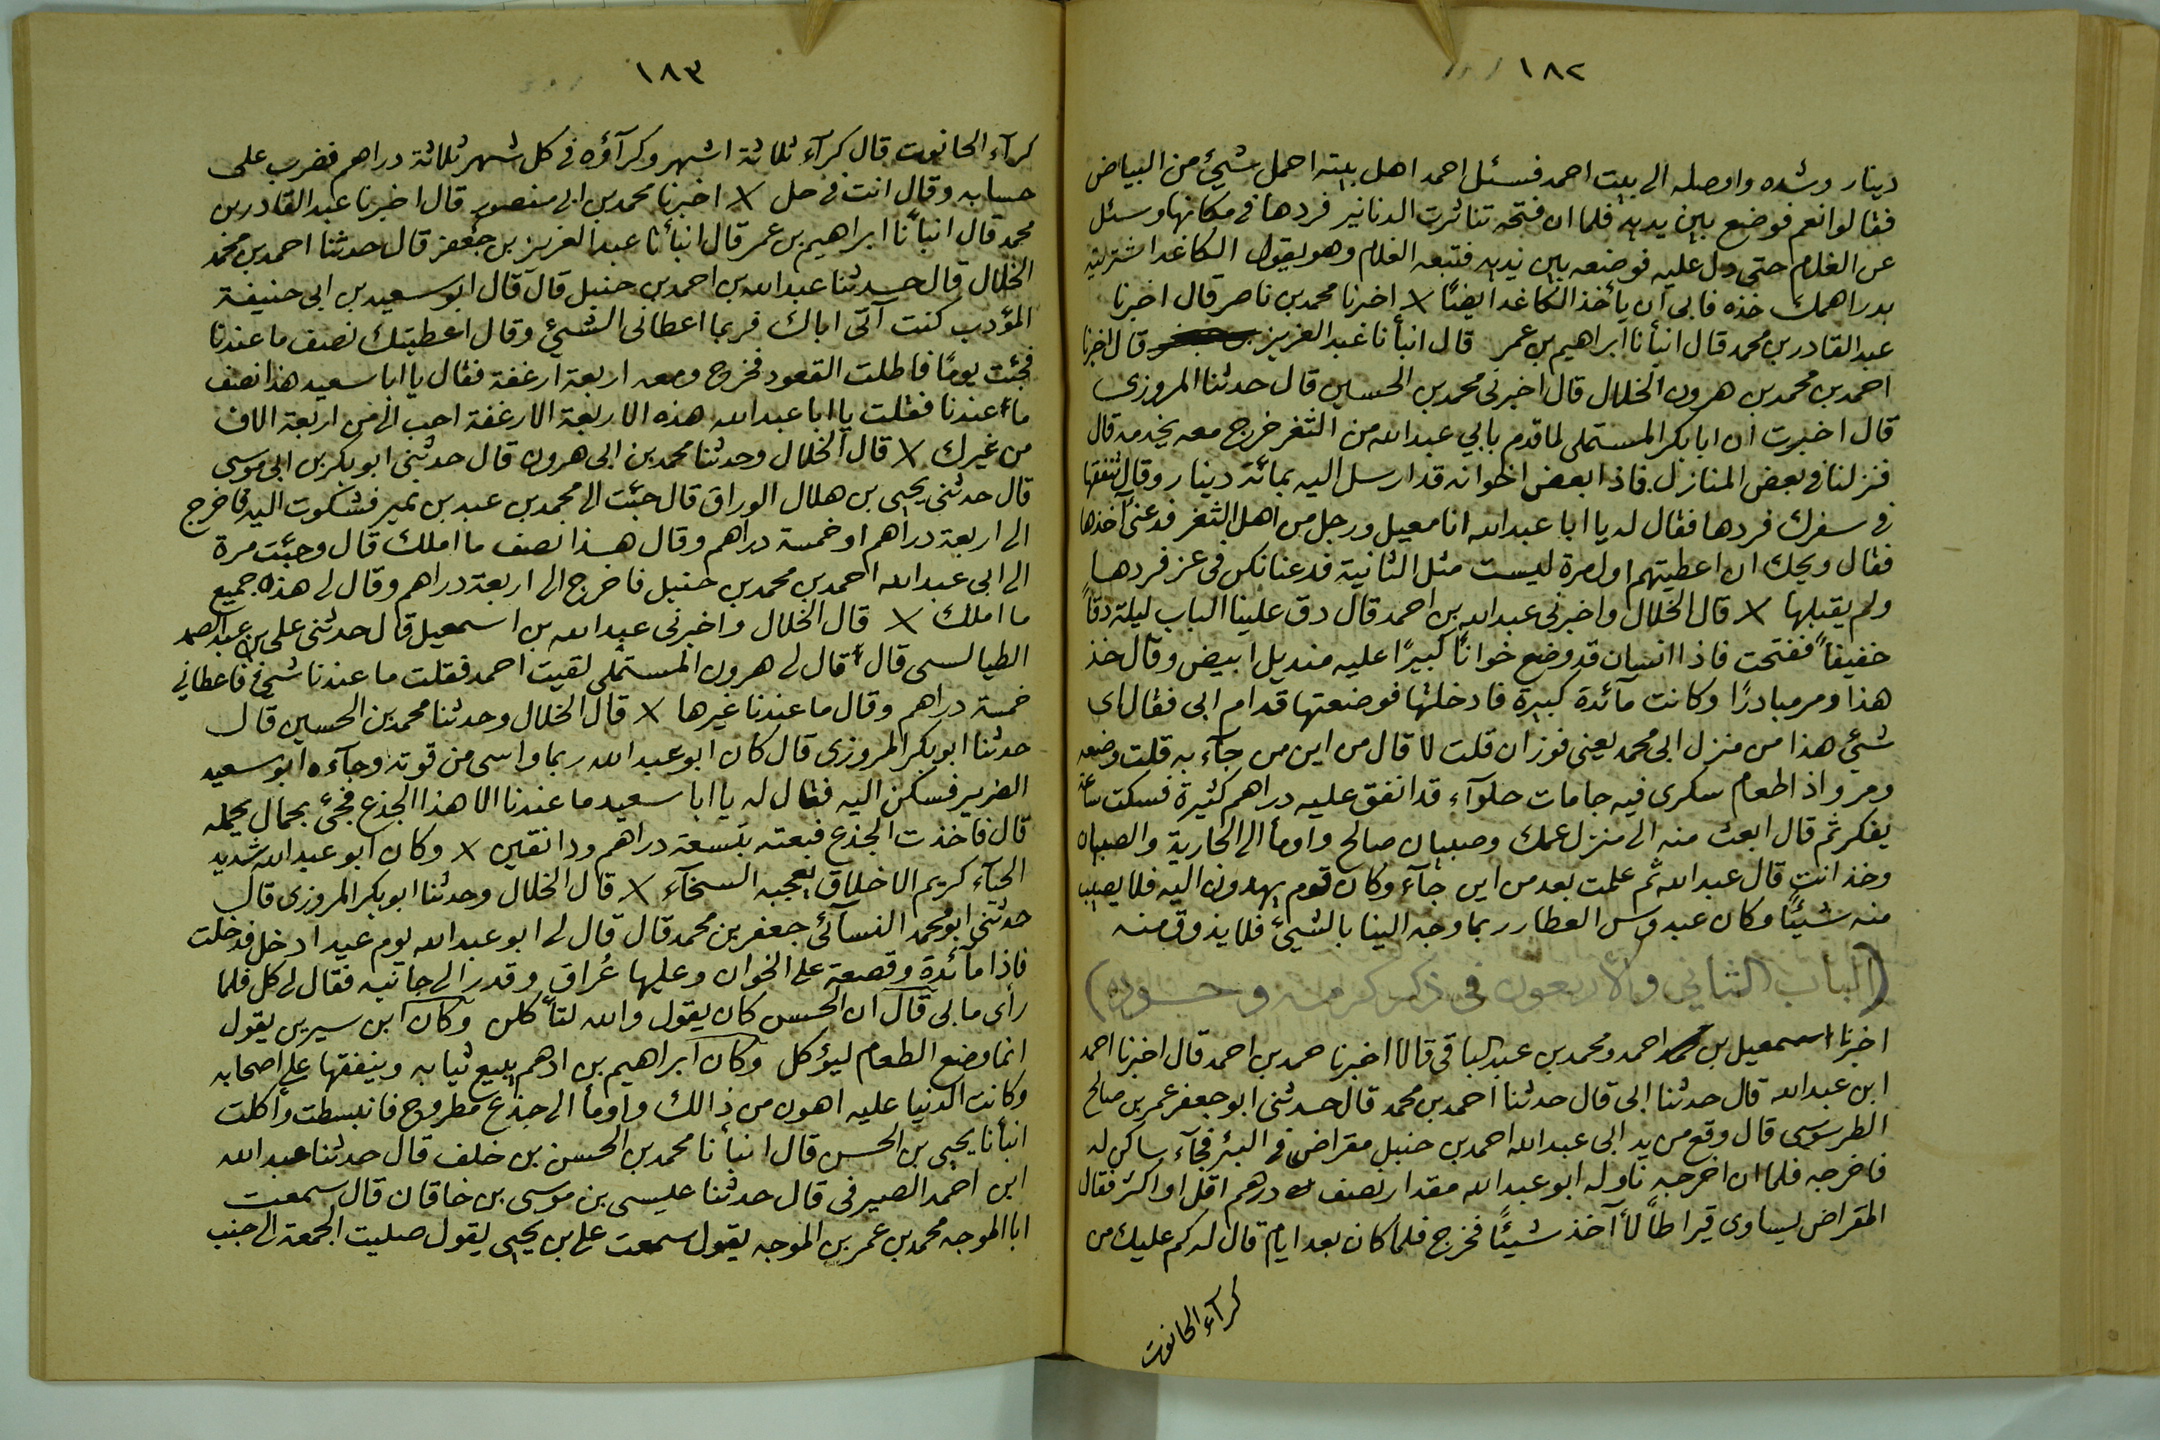 ١٨٢
دينار وشده واوصله الى بيت احمد فسئل احمد اهل بيته احمل شيئ من البياض
فقالوا نعم فوضع بين يديه فلما ان فتحه تناثرت الدنانير فردها في مكانها وسئل
عن الغلام حتى دل عليه فوضعه بين يديه فتبعه الغلام وهو يقول الكاغد اشتريته
بدراهمك خذه فابى ان يأخذ الكاغد ايضًا اخبرنا محمد بن ناصر قال اخبرنا
عبد القادر بن محمد قال انبأنا ابراهيم بن عمر قال انبأنا عبد العزيز قال اخبرنا
احمد بن محمد بن هرون الخلال قال اخبرني محمد بن الحسين قال حدثنا المروزي
قال اخبرت ان ابا بكر المستملى لما قدم بابي عبد الله من الثغر خرج معه يخدمه قال
فنزلنا في بعض المنازل فاذا بعض اخوانه قد ارسل اليه بمائة دينار وقال تنفقها
في سفرك فردها فقال له يا ابا عبد الله انا معيل ورجل من اهل الثغر فدعني آخذها
فقال ويحك ان اعطيتهم اول مرة ليست مثل الثانية فدعنا نكن في عز فردها
ولم يقبلها قال الخلال واخبرني عبد الله بن احمد قال دق علينا الباب ليلة دقاً
خفيفاً ففتحت فاذا انسان قد وضع خوانًا كبيرًا عليه منديل ابيض وقال خذ
هذا ومر مبادرًا وكانت مآئدة كبيرة فادخلتها فوضعتها قدام ابى فقال اى
شيئ هذا من منزل ابى محمد يعنى فوزان قلت لا قال من اين من جآء به قلت وضعه
ومر واذا طعام سكرى فيه جامات حلوآء قد انفق عليه دراهم كثيرة فسكت ساعة
يفكر ثم قال ابعث منه الى منزل عمك وصبيان صالح واومأ الى الجارية والصبيان
وخذ انت قال عبد الله ثم علمت بعد من اين جآء وكان قوم يهدون اليه فلا يصيب
منه شيئًا وكان عبدوس العطار ربما وجه الينا بالشيئ فلا يذوق منه
(الباب الثاني والأربعون في ذكر كرمه وجوده)
اخبرنا اسمعيل بن احمد ومحمد بن عبد الباقى قالا اخبرنا حمد بن احمد قال اخبرنا احمد
ابن عبد الله قال حدثنا ابى قال حدثنا احمد بن محمد قال حدثنى ابو جعفر عمر بن صالح
الطرسوسى قال وقع من يد ابى عبد الله احمد بن حنبل مقراض في البئر فجآء ساكن له
فاخرجه فلما ان اخرجه ناوله ابو عبد الله مقدار نصف درهم اقل او اكثر فقال
المقراض يساوى قيراطاً لا آخذ شيئًا فخرج فلما كان بعد ايام قال له كم عليك من
كرآء الحانوت
١٨٣
كرآء الحانوت قال كرآء ثلاثة اشهر وكرآؤه في كل شهر ثلاثة دراهم فضرب على
حسابه وقال انت في حل اخبرنا محمد بن ابى منصور قال اخبرنا عبد القادر بن
محمد قال انبأنا ابراهيم بن عمر قال انبأنا عبد العزيز بن جعفر قال حدثنا احمد بن محمد
الخلال قال حدثنا عبد الله بن احمد بن حنبل قال قال ابو سعيد بن ابى حنيفة
المؤدب كنت آتى اباك فربما اعطانى الشيئ وقال اعطيتك نصف ما عندنا
فجئت يومًا فاطلت القعود فخرج ومعه اربعة ارغفة فقال يا ابا سعيد هذا نصف
ما عندنا فقلت يا ابا عبد الله هذه الاربعة الارغفة احب الى من اربعة الاف
من غيرك قال الخلال وحدثنا محمد بن ابى هرون قال حدثنى ابو بكر بن ابى موسى
قال حدثنى يحيى بن هلال الوراق قال جئت الى محمد بن عبد بن نمير فشكوت اليه فاخرج
الى اربعة دراهم او خمسة دراهم وقال هذا نصف ما املك قال وجئت مرة
الى ابى عبد الله احمد بن محمد بن حنبل فاخرج الى اربعة دراهم وقال لى هذه جميع
ما املك قال الخلال واخبرنى عبد الله بن اسمعيل قال حدثنى على بن عبد الصمد
الطيالسى قال قال لى هرون المستملى لقيت احمد فقلت ما عندنا شيئ فاعطاني
خمسة دراهم وقال ما عندنا غيرها قال الخلال وحدثنا محمد بن الحسين قال
حدثنا ابو بكر المروزى قال كان ابو عبد الله ربما واسى من قوته وجآءه ابو سعيد
الضرير فسكن اليه فقال له يا ابا سعيد ما عندنا الا هذا الجذع فجئ بحمال يحمله
قال فاخذت الجذع فبعته بتسعة دراهم ودانقين وكان ابو عبد الله شديد
الحيآء كريم الاخلاق يعجبه السخآء قال الخلال وحدثنا ابو بكر المروزى قال
حدثنى ابو محمد النسآئى جعفر بن محمد قال قال لى ابو عبد الله يوم عيد ادخل فدخلت
فاذا مآئدة وقصعة على الخوان وعليها عُراق وقدر الى جانبه فقال لى كل فلما
رأى ما بى قال ان الحسن كان يقول والله لتأكلن وكان ابن سيرين يقول
انما وضع الطعام ليؤكل وكان ابراهيم بن ادهم يبيع ثيابه وينفقها على اصحابه
وكانت الدنيا عليه اهون من ذالك واومأ الى جذع مطروح فانبسطت وأكلت
انبأنا يحيى بن الحسن قال انبأنا محمد بن الحسن بن خلف قال حدثنا عبد الله
ابن احمد الصيرفى قال حدثنا عيسى بن موسى بن خاقان قال سمعت
ابا الموجه محمد بن عمر بن الموجه يقول سمعت على بن يحيى يقول صليت الجمعة الى جنب